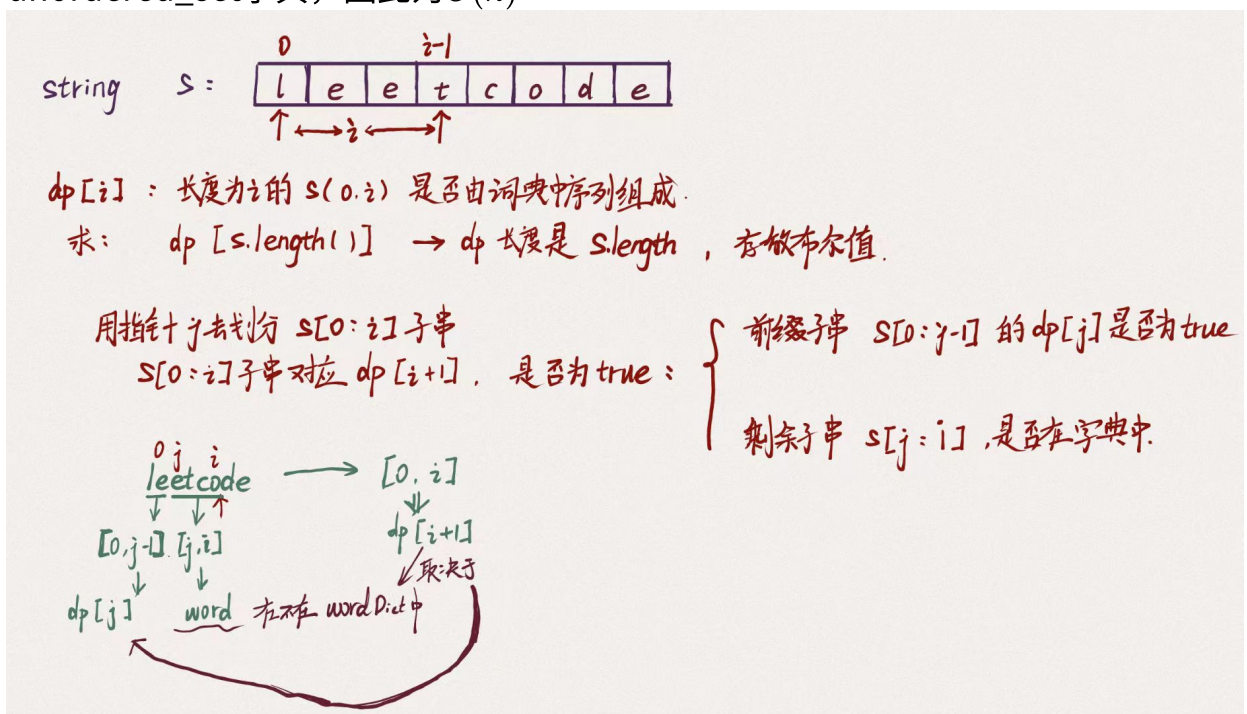 0 i-1
string s: l e e t c o d e
i
dp[i]：长度为i的 s(0,i) 是否由词典中序列组成.
求： dp [s.length()] → dp 长度是 s.length ，存放布尔值.
用指针 j 去划分 s[0:i] 子串
s[0:i] 子串对应 dp[i+1]，是否为true：
前缀子串 s[0:j-1] 的dp[j]是否为true
剩余子串 s[j:i] ,是否在字典中.
0 j i
leetcode → [0,i]
[0,j-1] [j,i] dp[i+1]
取决于
dp[j] word 在不在 wordDict中